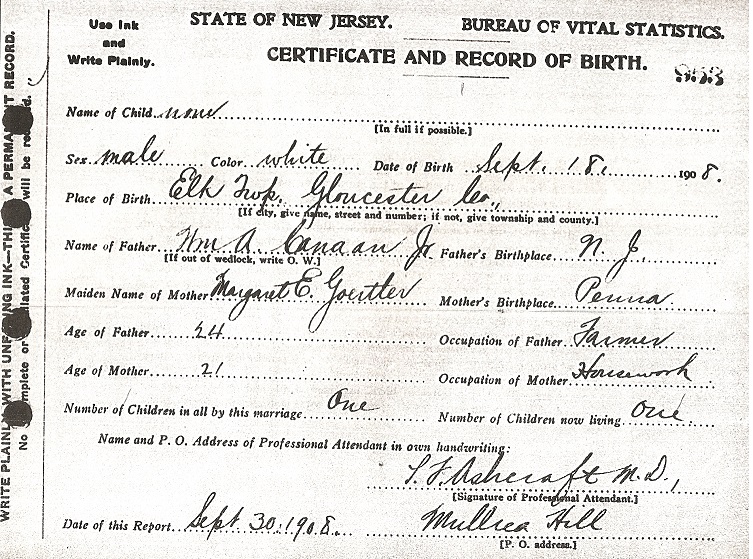 Use Ink
and
Write Plainly.
STATE OF NEW JERSEY. BUREAU OF VITAL STATISTICS.
CERTIFICATE AND RECORD OF BIRTH. 953
Name of Child none
[In full if possible.]
Sex male Color white Date of Birth Sept. 18, 1908.
Place of Birth Elk Twp. Gloucester Co.,
[If city, give name, street and number; if not, give township and county.]
Name of Father Wm A. Canaan Jr Father's Birthplace N. J.
[If out of wedlock, write O. W.]
Maiden Name of Mother Margaret E. Goertler Mother's Birthplace Penna.
Age of Father 24 Occupation of Father Farmer
Age of Mother 21 Occupation of Mother Housework
Number of Children in all by this marriage One Number of Children now living One.
Name and P. O. Address of Professional Attendant in own handwriting:
S. F. Ashcraft M.D.,
[Signature of Professional Attendant.]
Date of this Report Sept. 30, 1908. Mullica Hill
[P. O. address.]
WRITE PLAINLY WITH UNFADING INK—THIS A PERMANENT RECORD.
No will be